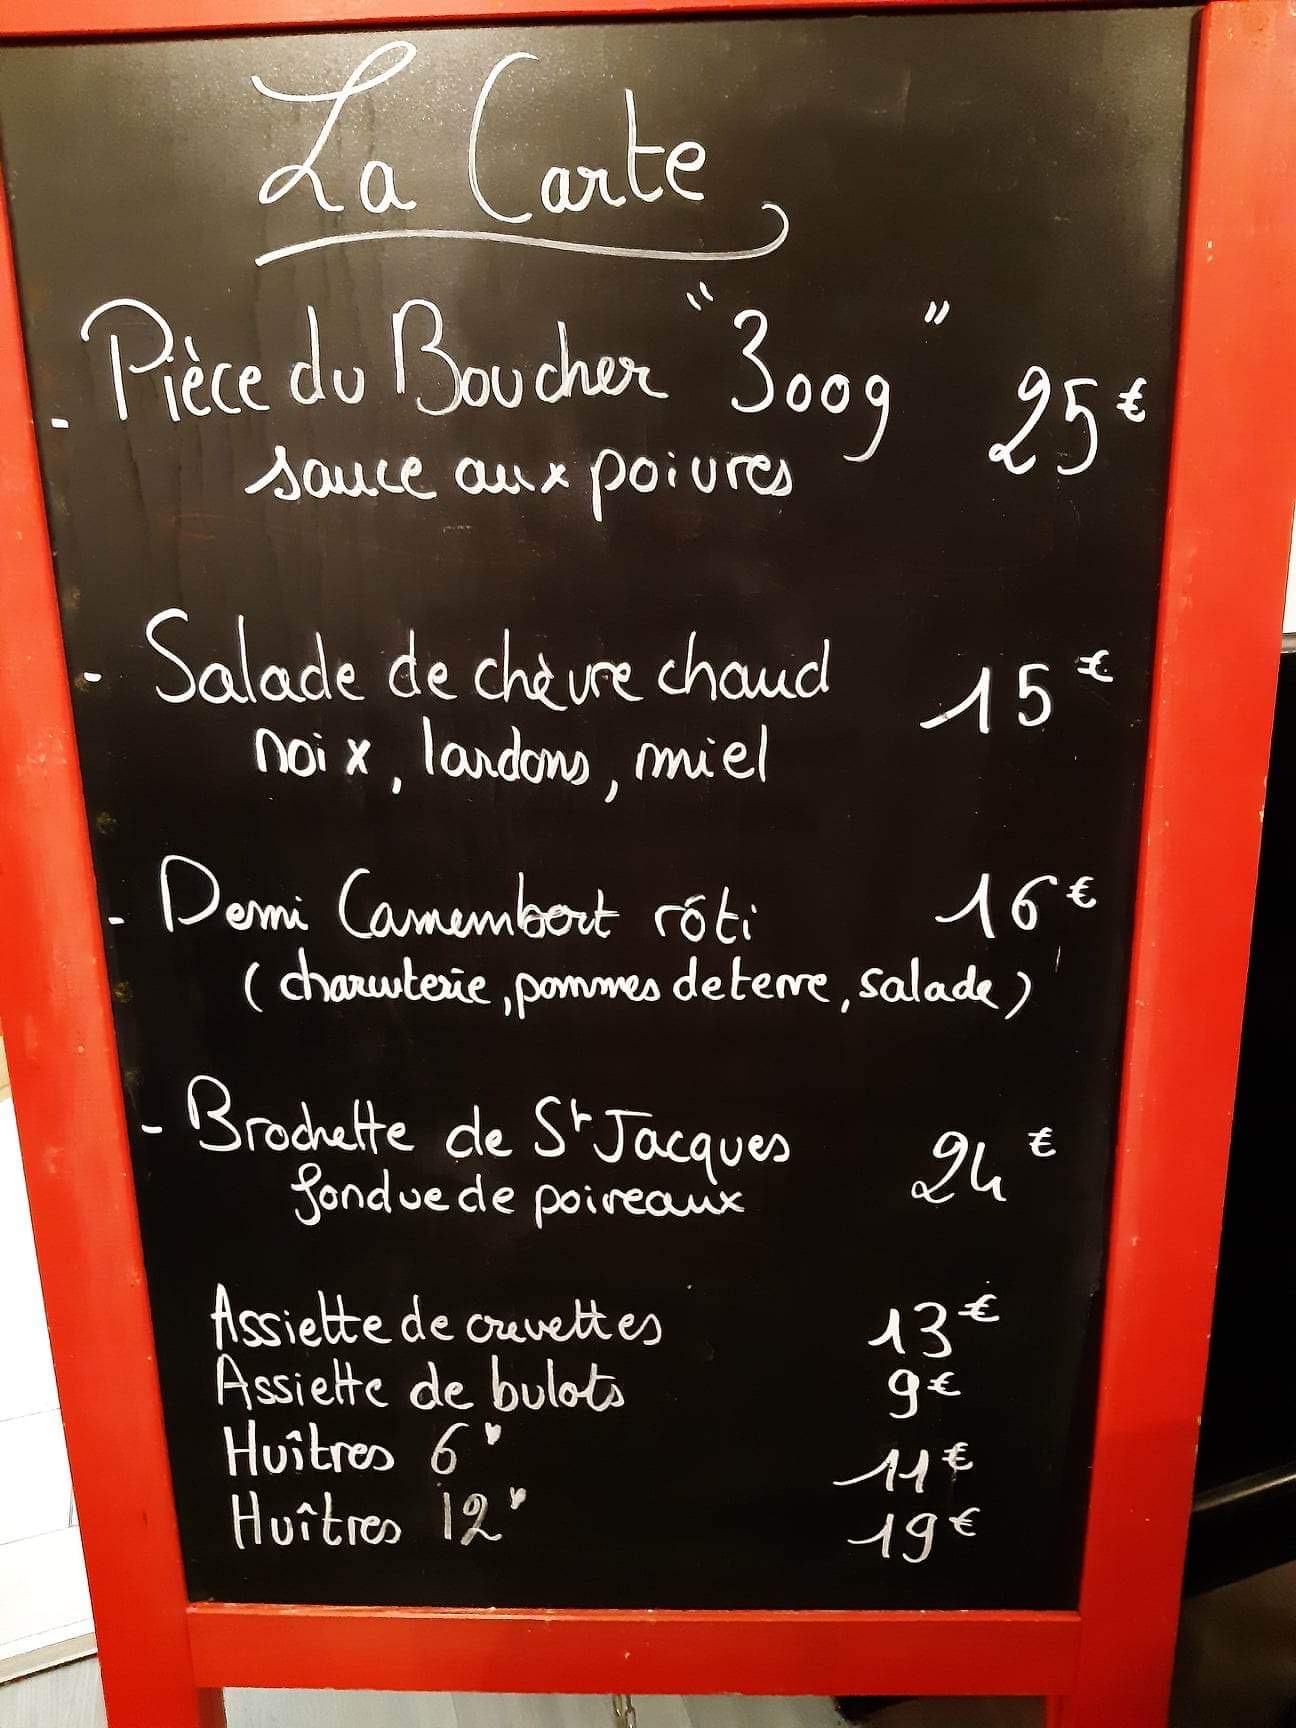 La Carte
- Pièce du Boucher "300g" 25€
sauce aux poivres
- Salade de chèvre chaud 15€
noix, lardons, miel
- Demi Camembert rôti 16€
(charcuterie, pommes de terre, salade)
- Brochette de St Jacques 24€
fondue de poireaux
Assiette de crevettes 13€
Assiette de bulots 9€
Huîtres 6" 11€
Huîtres 12" 19€